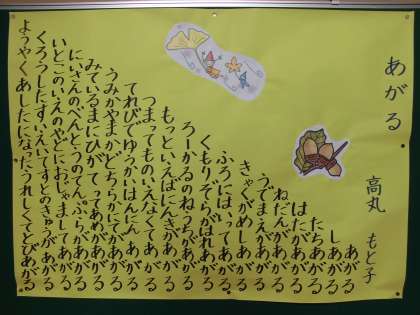 あがる
高丸 もと子
あがる
しあがる
たちあがる
はたがあがる
ねだんがあがる
うでまえがあがる
きゃくがめしあがる
ふろにはいってあがる
くもりぞらがはれあがる
ろーかるのねうちがあがる
もっといえばにんきがあがる
つまってものいえなくてあがる
てれびでゆうかいはんにん あがる
うみかやまかどちらかにてがあがる
みているまにひがてってあめがあがる
にいさんのべんとうのてんぷらがあがる
いとこのいえのやどにおじゃましてあがる
くろうしたすいえいてすとのきゅうがあがる
ようやくあしたになったうれしくてとびあがる